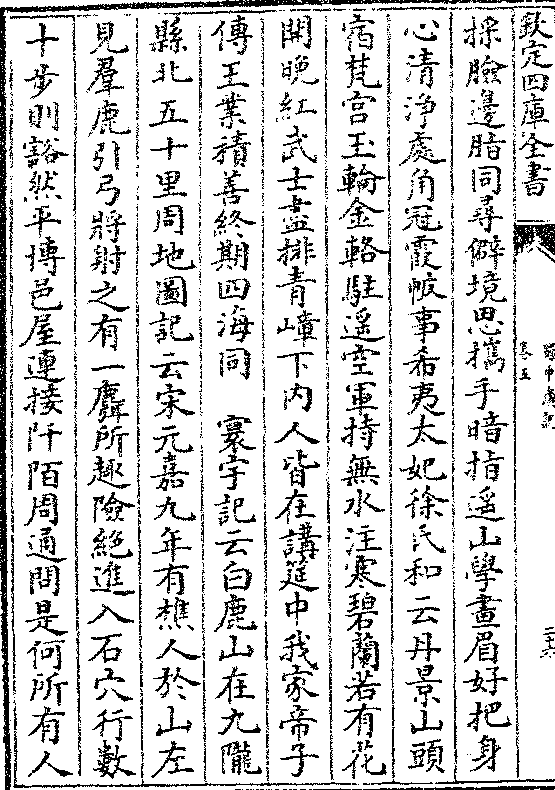 欽定四庫全書
卷五
採臉邊脂同尋僻境思攜手暗指遥山學畫眉好把身
心清淨處角冠霞帔事希夷太妃徐氏和云丹景山頭
宿梵宫玉輪金輅駐遥空軍持無水注寒碧蘭若有花
開晚紅武士盡排青嶂下内人皆在講筵中我家帝子
傳王業積善終期四海同　寰宇記云白鹿山在九隴
縣北五十里周地圖記云宋元嘉九年有樵人於山左
見羣鹿引弓將射之有一麛所趣險絶進入石穴行數
十步則豁然平博邑屋連接阡陌周通問是何所有人